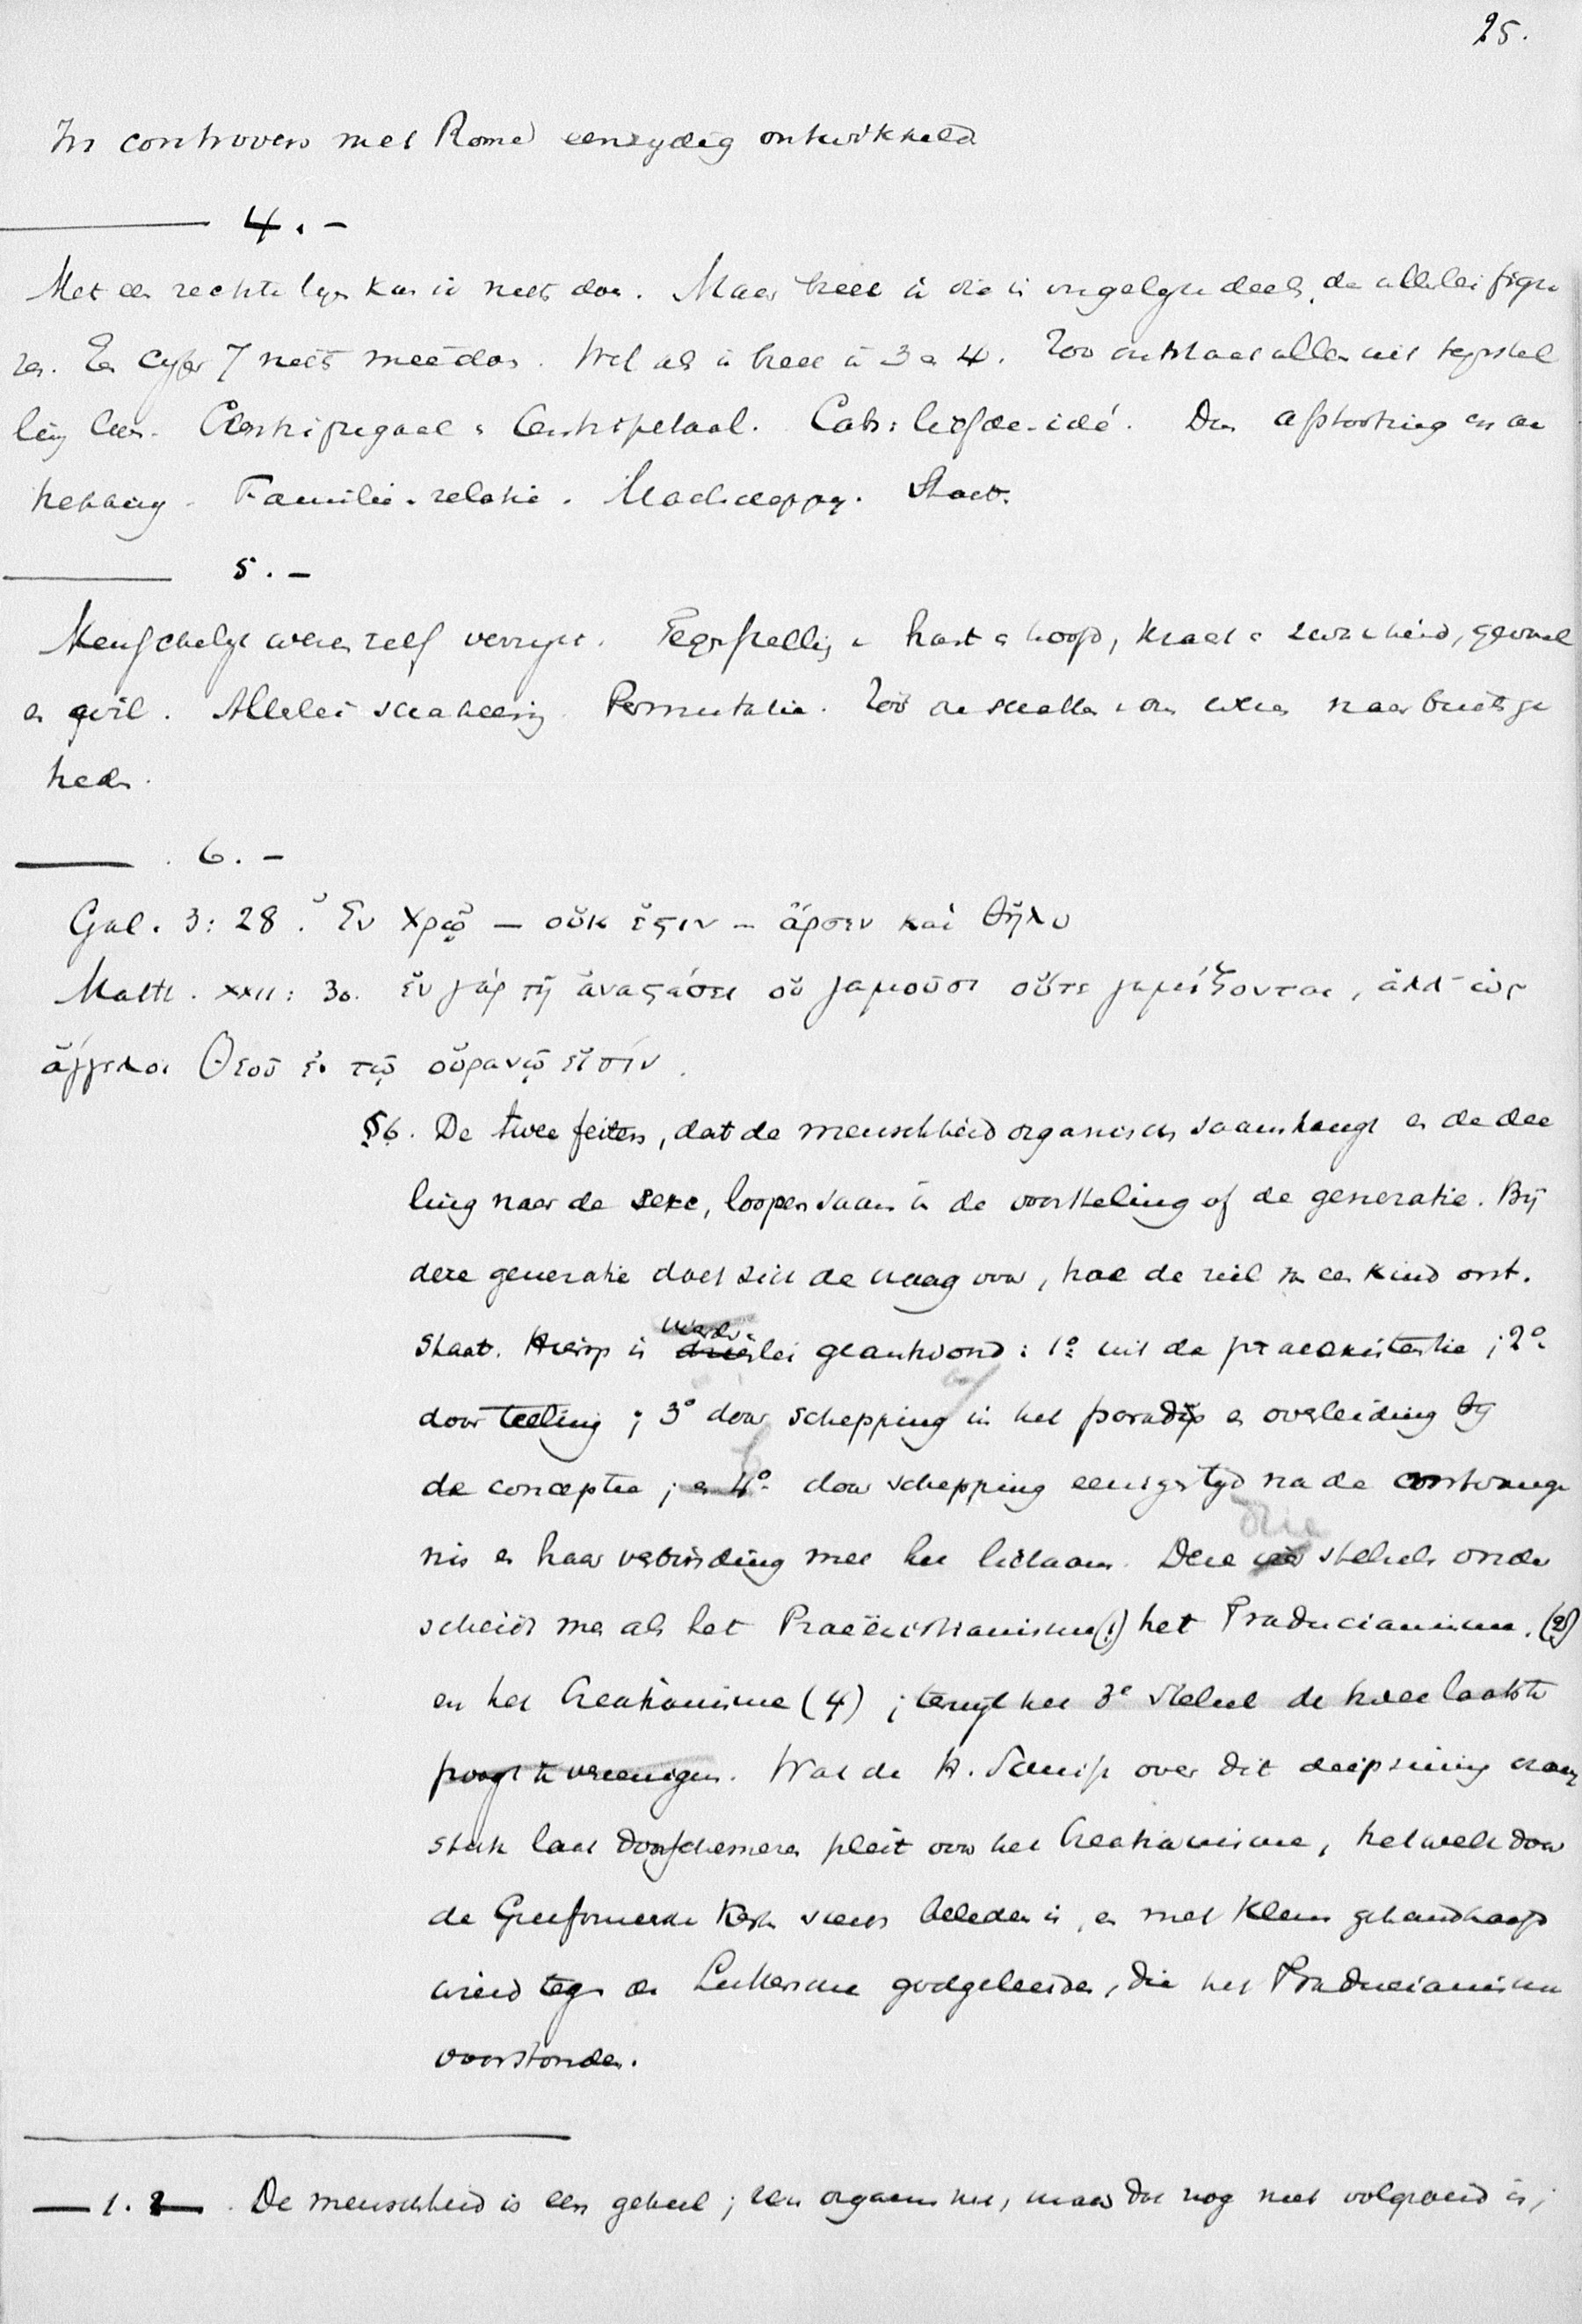 25.
In controvers met Rome eenzydig ontwikkeld
4. -
Met een rechte lyn kan ik niets doen. Maar breek ik die in ongelyke deels, dan allerlei figu
ren. En cyfer 7 niets meê doen. Wel als ik breek in 3 en 4. Zoo ontstaat alles uit tegenstel
ling. Centrifugaal en Centripetaal. Cats: liefde-idé. Dus afstooting en aan
trekking. Familie-relatie. Maatschappy. Staat.
5. -
Menschelyk wezen zelf verrykt. Tegenstelling in hart en hoofd, kracht en zwakheid, gevoel
en wil. Allerlei schakeering. Permutatie. Zoo de schatten in ons wezen naar buiten ge
treden.
6. -
Gal. 3: 28. Ἐν Χρῷ — οὐκ ἔςιν — ἄρσεν καὶ θῆλυ
Matth. XXII: 30. ἐν γάρ τῇ ἀναςάσει οὐ γαμοῦσι οὔτε γαμίζονται, ἀλλ' ὡς
ἄγγελοι Θεοῦ ἐν τῷ οὐρανῷ εἰσίν.
§6. De twee feiten, dat de menschheid organisch saamhangt en de dee
ling naar de sexe, loopen saam in de voortteling of de generatie. Bij
deze generatie doet zich de vraag voor, hoe de ziel in een kind ont.
staat. Hierop is drieërlei geantwoord: 1º. uit de praeexistentie; 2º.
door teeling; 3º door schepping in het paradijs en overleiding by
de conceptie; en 4º. door schepping eenigen tyd na de ontvange
nis en haar verbinding met het lichaam. Deze vier drie stelsels onder
scheidt men als het Praeëxistianisme (1) het Traducianisme. (2)
en het Creatianisme (4); terwyl het 3e stelsel de twee laatste
poogt te vereenigen. Wat de H. Schrift over dit diepzinnig vraag
stuk laat doorschemeren pleit voor het Creatianisme, hetwelk door
de Gereformeerde Kerk steeds beleden is, en met klem gehandhaafd
wierd tegen de Luthersche godgeleerden, die het Traducianisme
voorstonden.
1. 2. De menschheid is een geheel; een organisme, maar dat nog niet volgroeid is;